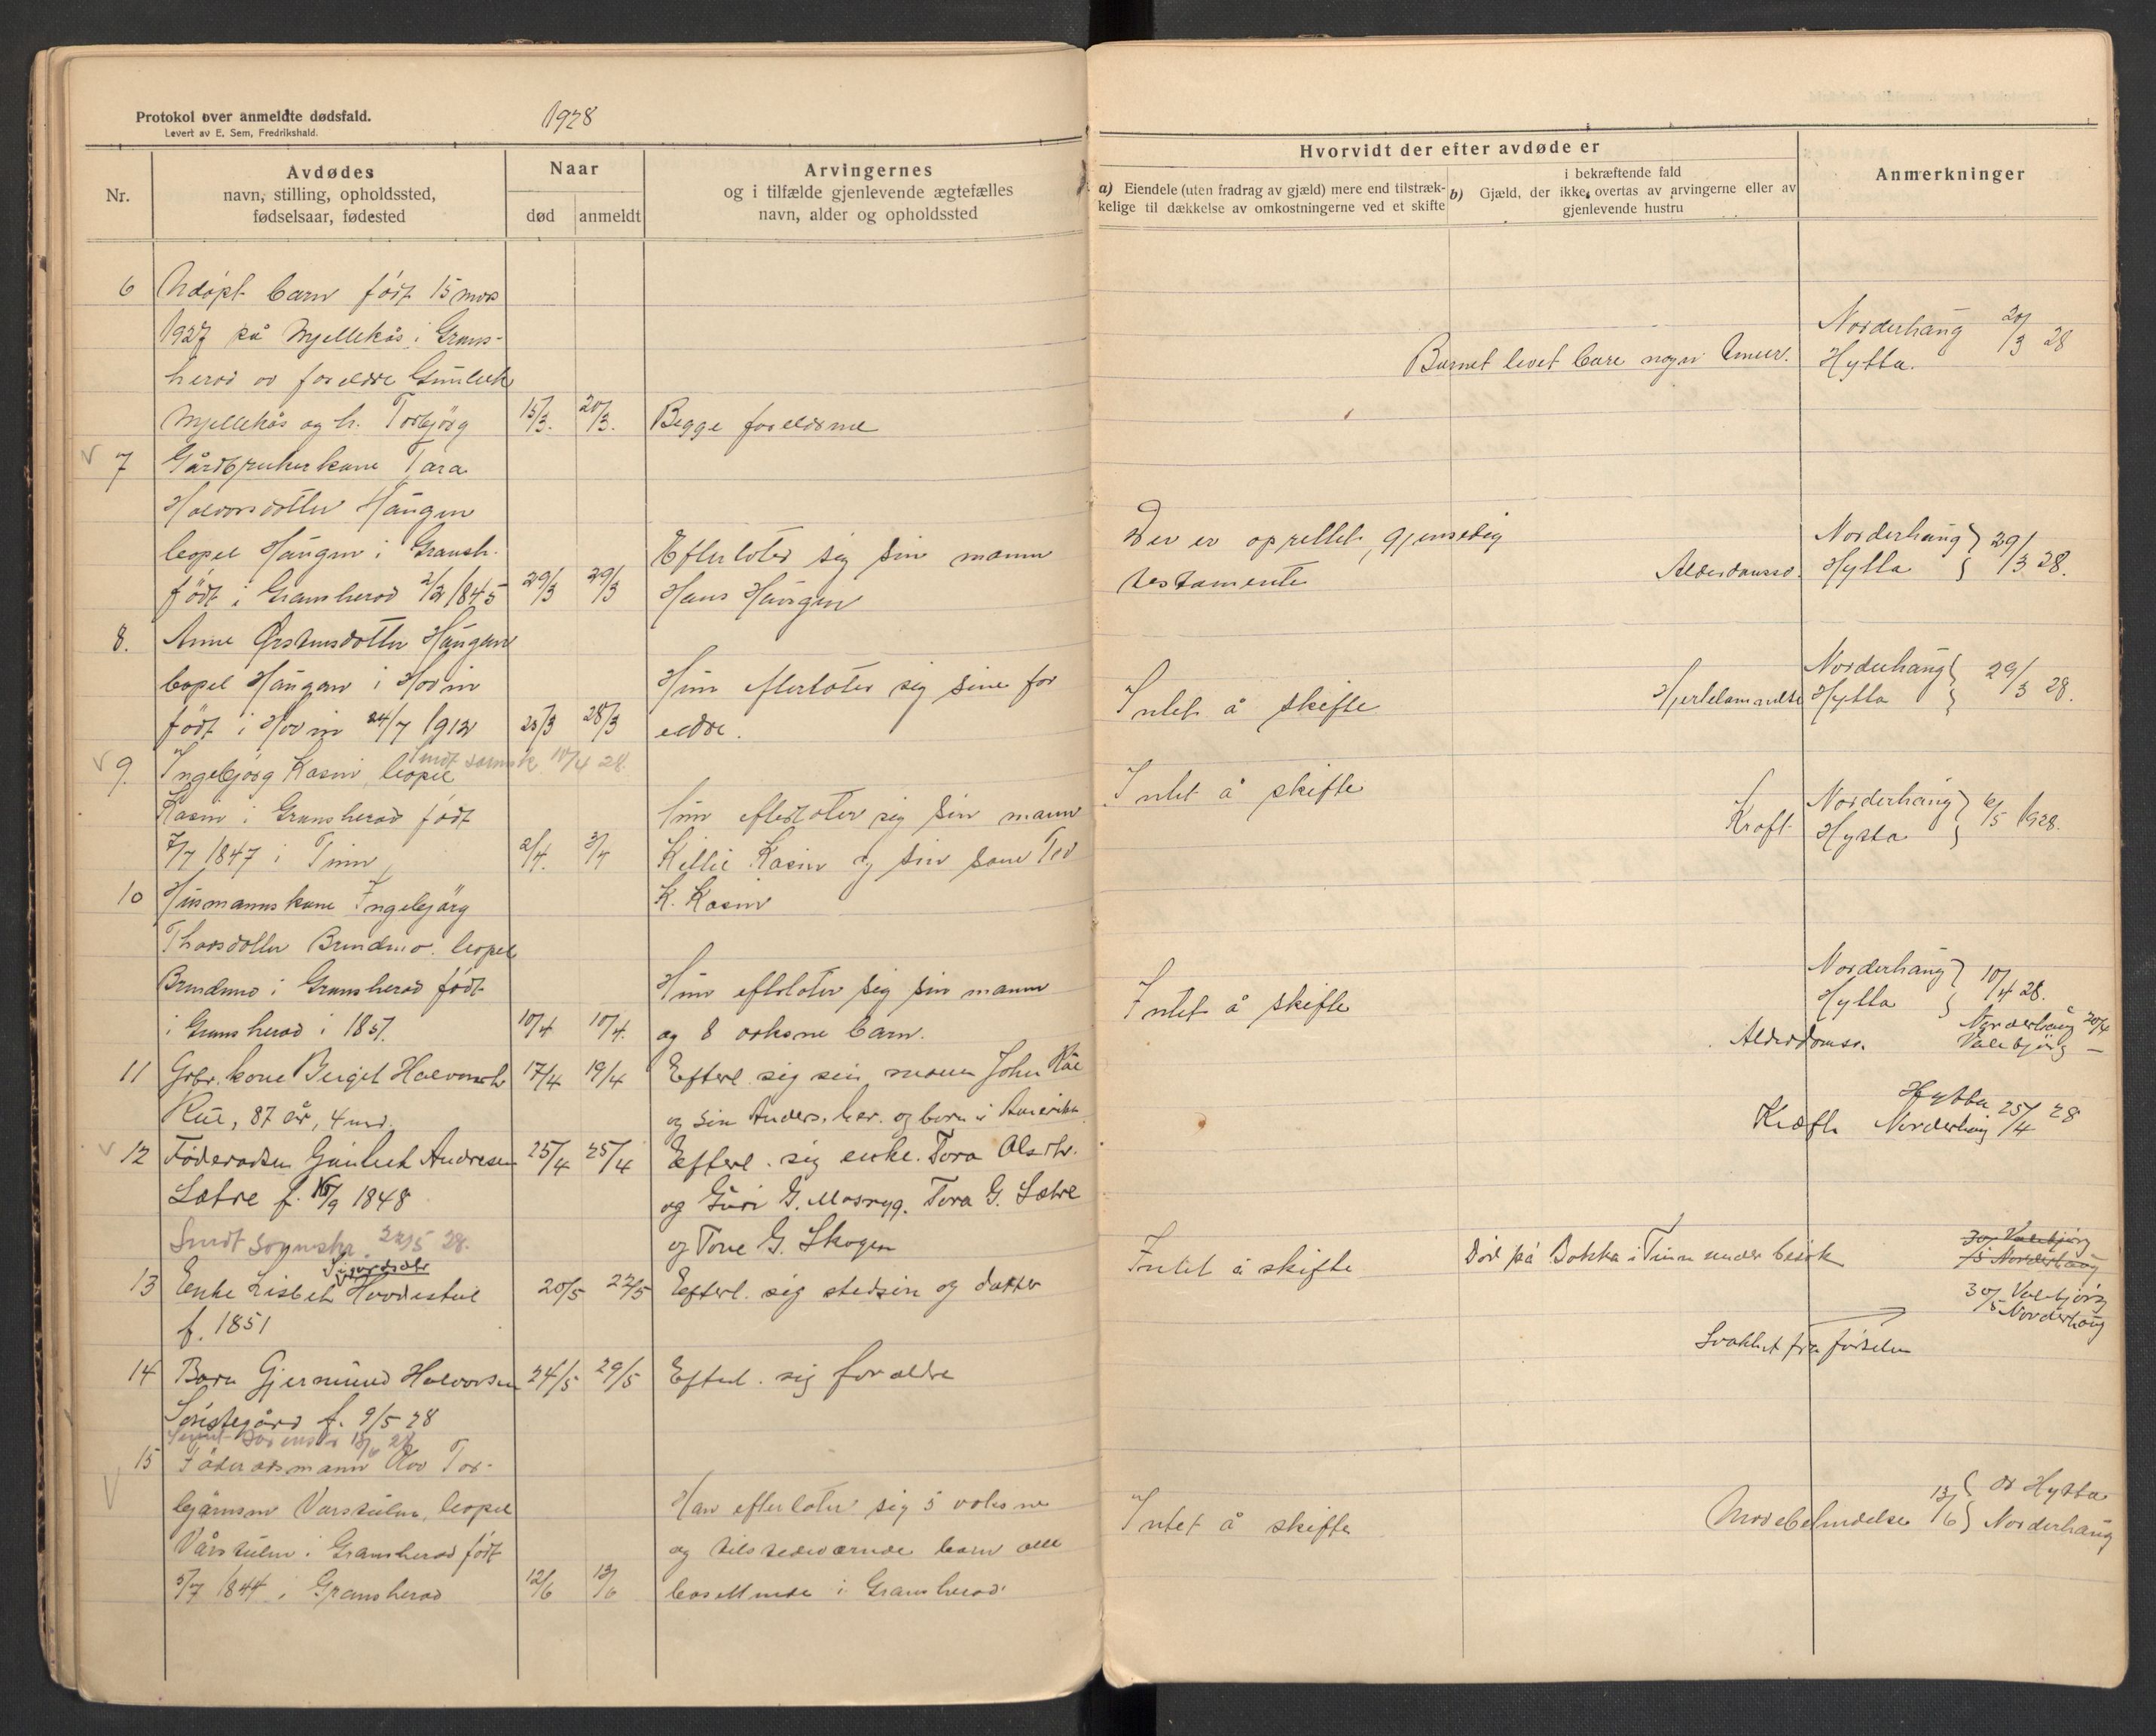 Protokol over anmeldte dødsfald.
Levert av E. Sem, Fredrikshald.
1928
Nr.
Avdødes
navn, stilling, opholdssted,
fødselsaar, fødested
Naar
død
anmeldt
Arvingernes
og i tilfælde gjenlevende ægtefælles
navn, alder og opholdssted
Hvorvidt der efter avdøde er
a) Eiendele (uten fradrag av gjæld) mere end tilstræk-
kelige til dækkelse av omkostningerne ved et skifte
i bekræftende fald
b) Gjæld, der ikke overtas av arvingerne eller av
gjenlevende hustru
Anmerkninger
6 Udöpt barn födt 15 mars
1927 på Mjellekås i Grans-
herad av foreldre Gunleik
Mjellekås og h. Torbjörg 15/3. 20/3. Begge foreldrene
Barnet levet bare nogen timer.
Norderhaug 20/3 28
Hytta.
7 Gårdbrukerkone Tara
Halvorsdotter Haugen
bopel Haugen i Gransh.
födt i Gransherad 2/2 1845 29/3 29/3
Efterlater sig sin mann
Hans Haugen
Der er oprettet gjensidig
testamente
Alderdomss.
Norderhaug
Hytta 29/3 28.
8. Anne Østensdotter Haugen
bopel Haugen i Hovin
födt i Hovin 24/7 1912 25/3 28/3
Hun efterlater sig sine for
eldre.
Intet å skifte
Norderhaug
Hytta 29/3 28.
9. Ingebjörg Kasin, bopel
Sendt 10/4 28.
Kasin i Gransherad födt
7/7 1847 i Tinn 2/4. 3/4
hun efterlater sig sin mann
Kittil Kasin og sin sönn Tov
K. Kasin
Intet å skifte
Kræft
Norderhaug
Hytta 6/5 1928.
10 Husmannskone Ingebjörg
Thorsdotter Brendmo. bopel
Brendmo i Gransherad födt
i Gransherad i 1857. 10/4 10/4.
Hun efterlater sig sin mann
og 8 voksne barn.
Intet å skifte
Norderhaug
Hytta 10/4 28.
11 Grbr. kone Birgit Halvorsdtr 17/4 19/4 Efterl. sig sin mann John Rue
Rue, 87 år, 4 mnd. og sön Anders, her. og born i Amerika
Alderdomss.
Norderhaug 20/4
Valebjörg
12 Föderådsm. Gunleik Andresen 25/4 25/4 Efterl. sig enke. Tora Olsdtr.
Lætre f. 10/9 1848 og Guri G. Mosryg. Tora G. Lætre
og Tone G. Skogen
Sendt sorenskr. 22/5 28.
Kræft
Hytta
Norderhaug 25/4 28
13 Enke Lisbet Sigurdsdtr 20/5 22/5 Efterl. sig stedsön og datter
f. 1851
Intet å skifte
Död på Bakka i Tinn under besök
30/5 Valebjörg
Norderhaug
30/5 Valebjörg
Norderhaug
14 Barn Gjermund Halvorsen 24/5 29/5 Efterl. sig foreldre
f. 9/5 28
Svakhet fra födselen
Sendt sorenskr 13/6 28
15 Föderadsmann Olav Tor-
björnsen Vårstulen, bopel
Vårstulen i Gransherad födt
5/7 1844 i Gransherad 12/6 13/6
Han efterlater sig 5 voksne
og tilstedeværende barn alle
bosittende i Gransherad
Intet å skifte
13/6
dr Hytta
Norderhaug